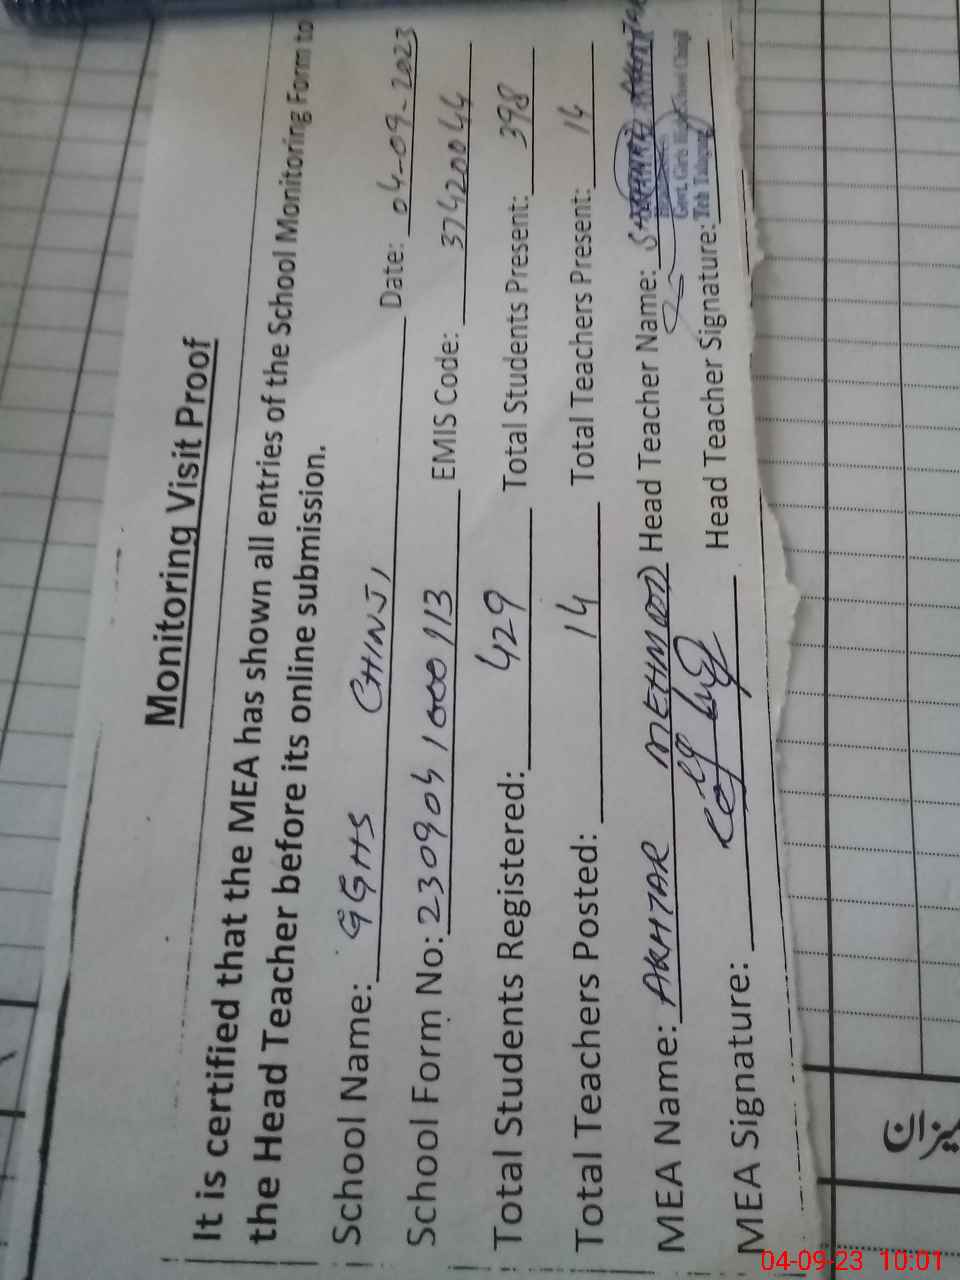 Monitoring Visit Proof
It is certified that the MEA has shown all entries of the School Monitoring Form to
the Head Teacher before its online submission.
School Name: GGHS CHINJI Date: 04-09-2023
School Form No: 2309041000113 EMIS Code: 37420044
Total Students Registered: 429 Total Students Present: 398
Total Teachers Posted: 14 Total Teachers Present: 14
MEA Name: AKHTAR MEHMOOD Head Teacher Name:
Govt. Girls High School Chinji
MEA Signature: Head Teacher Signature: Teh Talagang
میزان
04-09-23 10:01